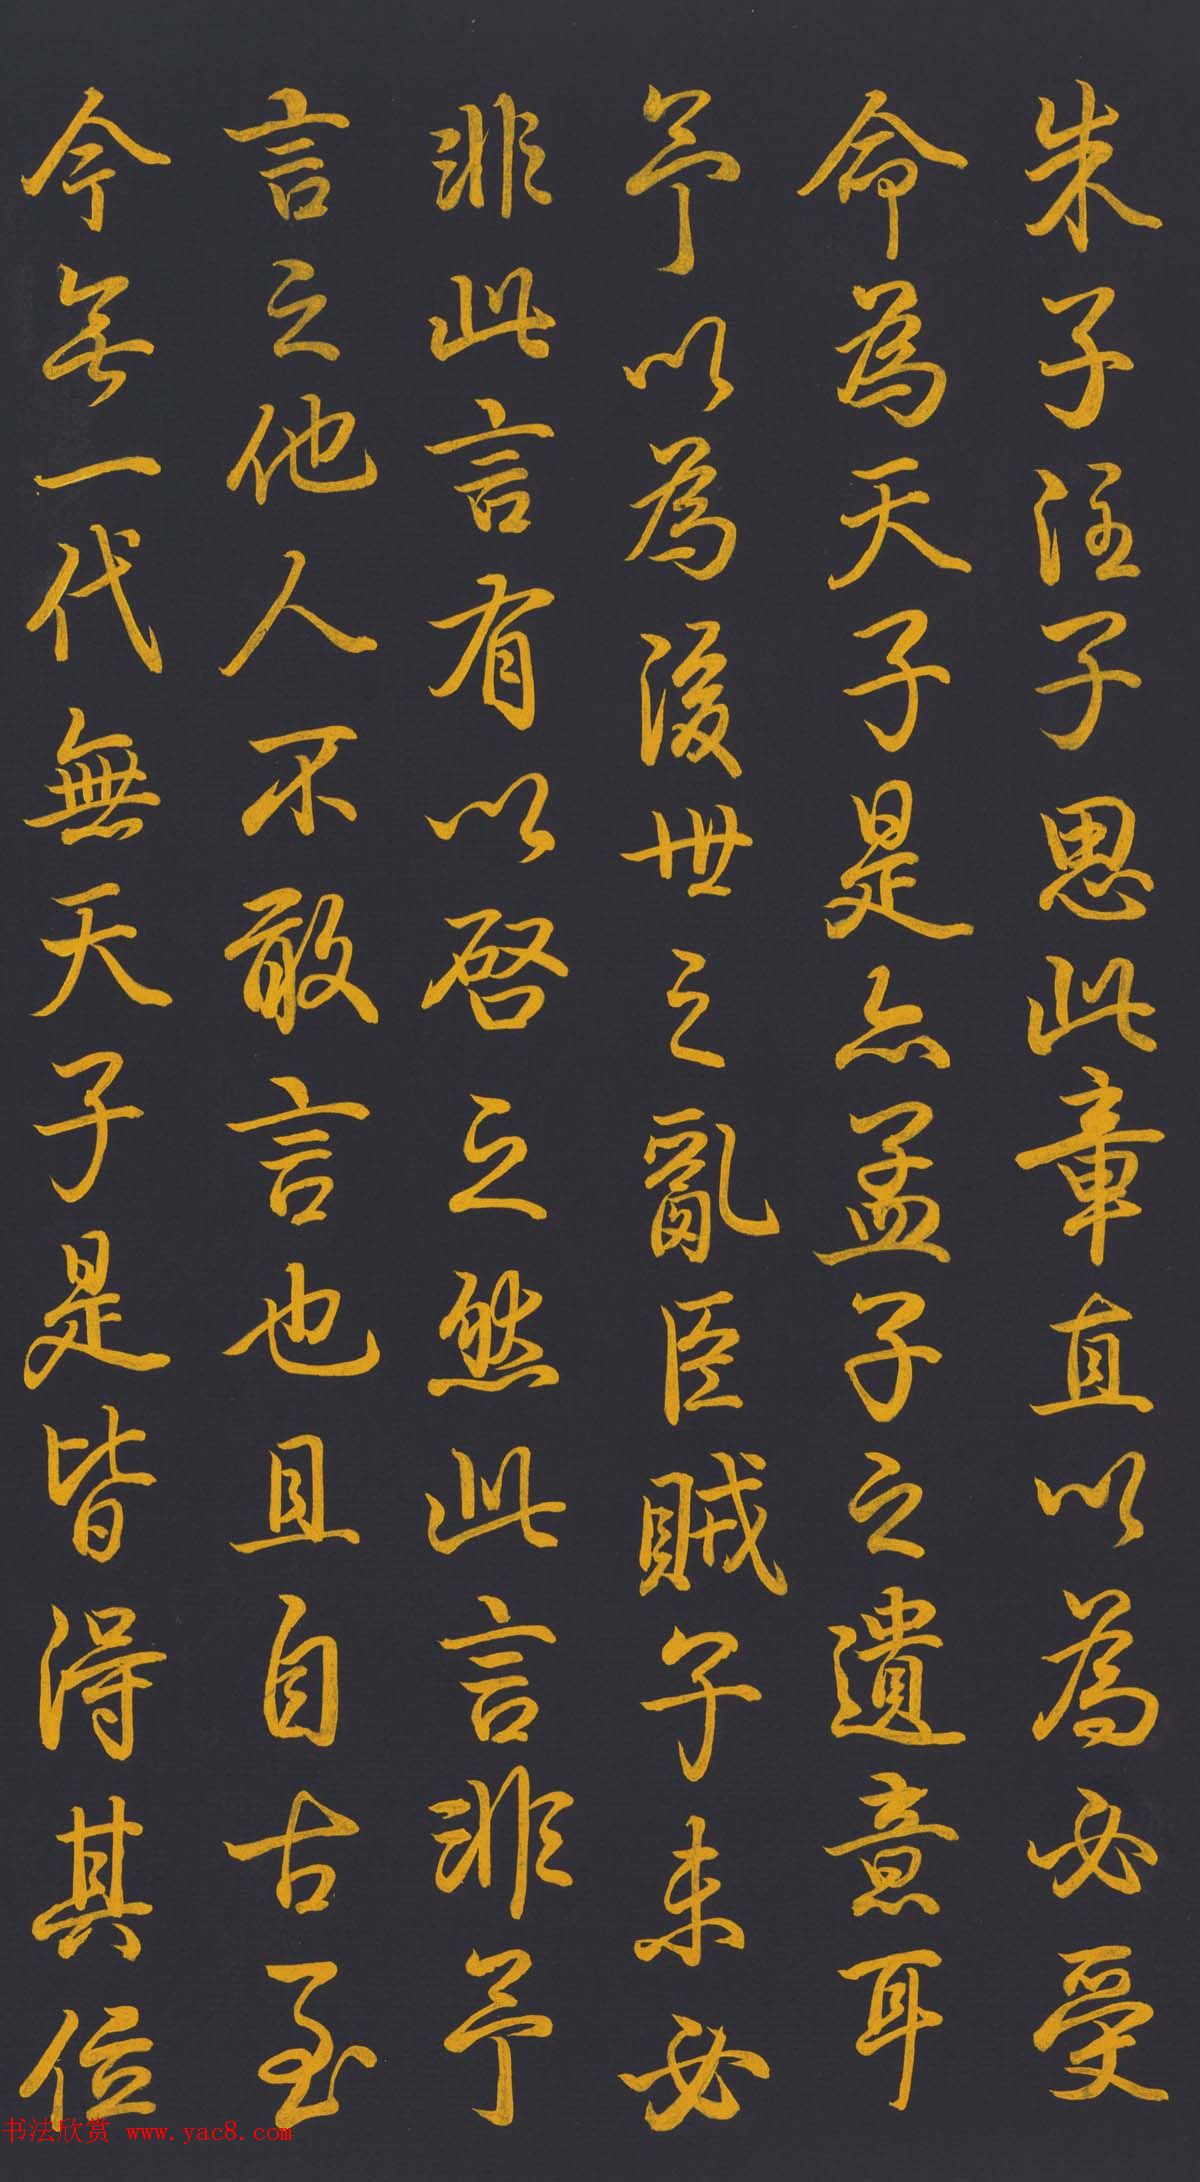 朱子注子思此章直以為必受
命為天子是亦孟子之遺意耳
予以為後世之亂臣賊子未必
非此言有以啓之然此言非予
言之他人不敢言也且自古至
今無一代無天子是皆得其位
书法欣赏 www.yac8.com